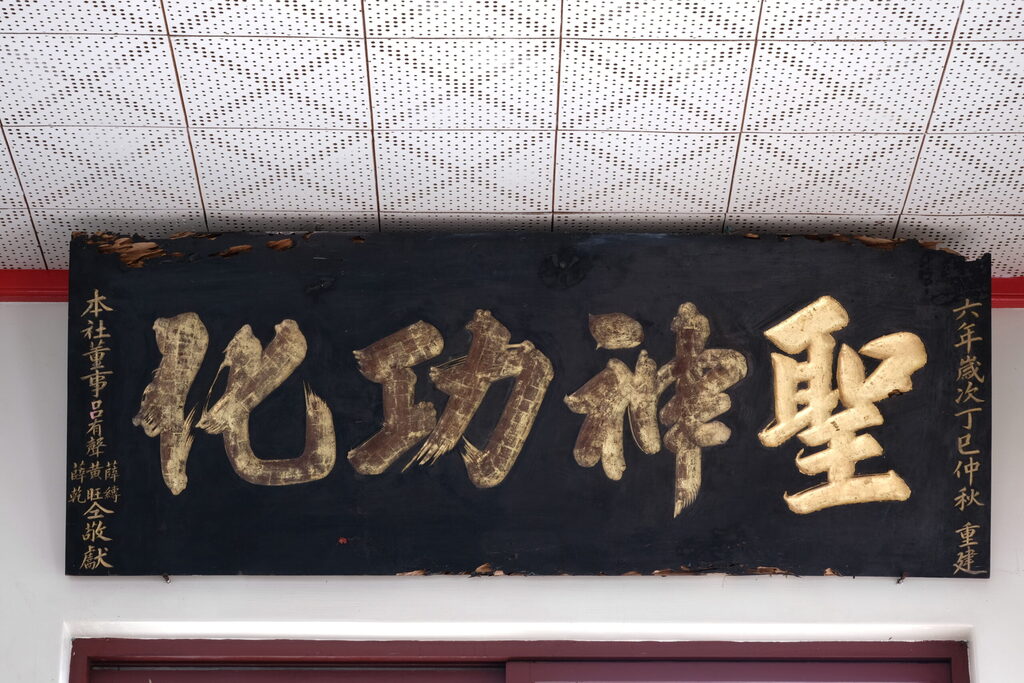 聖神功化
六年歲次丁巳仲秋 重建
本社董事呂有聲
薛縛
黃旺
薛乾
仝敬獻